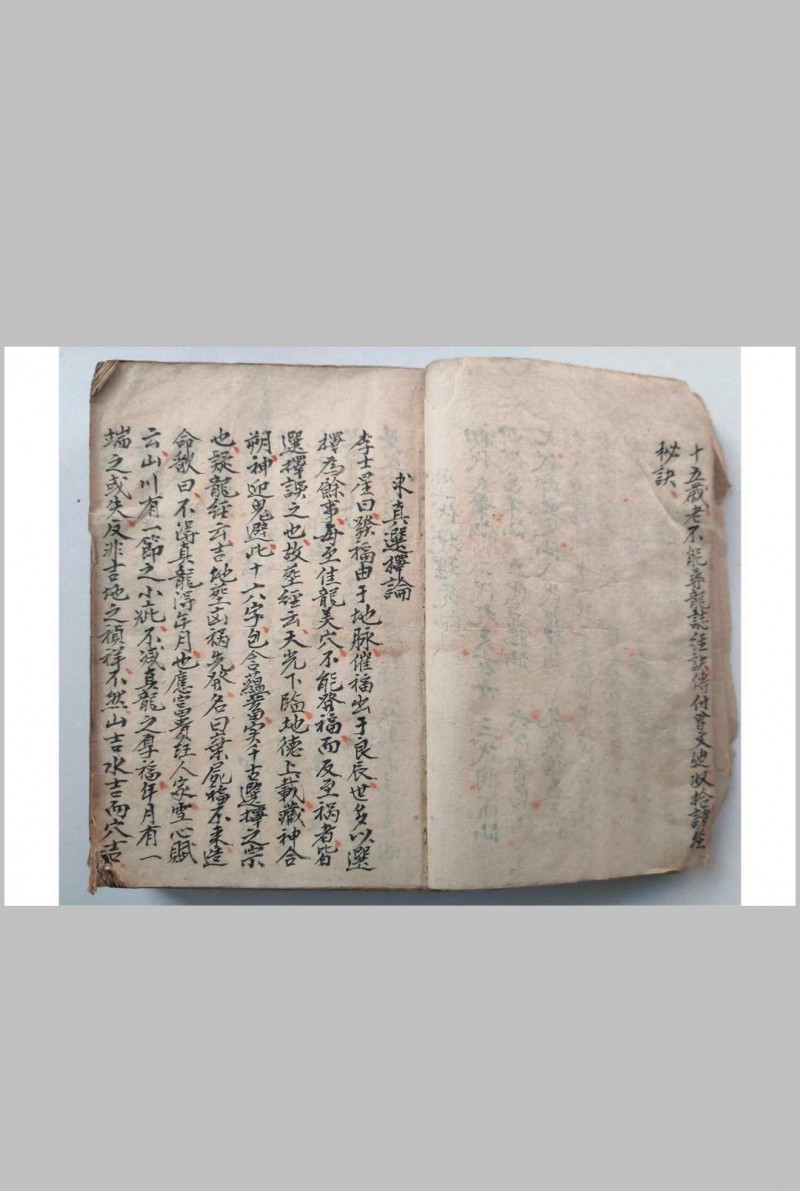 十五歲老不能尋龍誌經訣傳付曾文迪收拾諸經
秘訣
求真選擇論
李士星曰發福由于地脉催福出于良辰世多以選
擇為餘事每至佳龍美穴不能發福而反至禍者皆
選擇誤之也故塟經云天光下臨地德上載藏神合
朔神迎鬼避此十六字包含蘊蓄实千古選擇之宗
也疑龍經云吉地塟凶禍先發名曰棄屍福不来造
命歌曰不得真龍得年月也應富貴在人家雪心賦
云山川有一節之小疵不减真龍之厚福年月有一
端之或失反非吉地之禎祥不然山吉水吉而穴吉